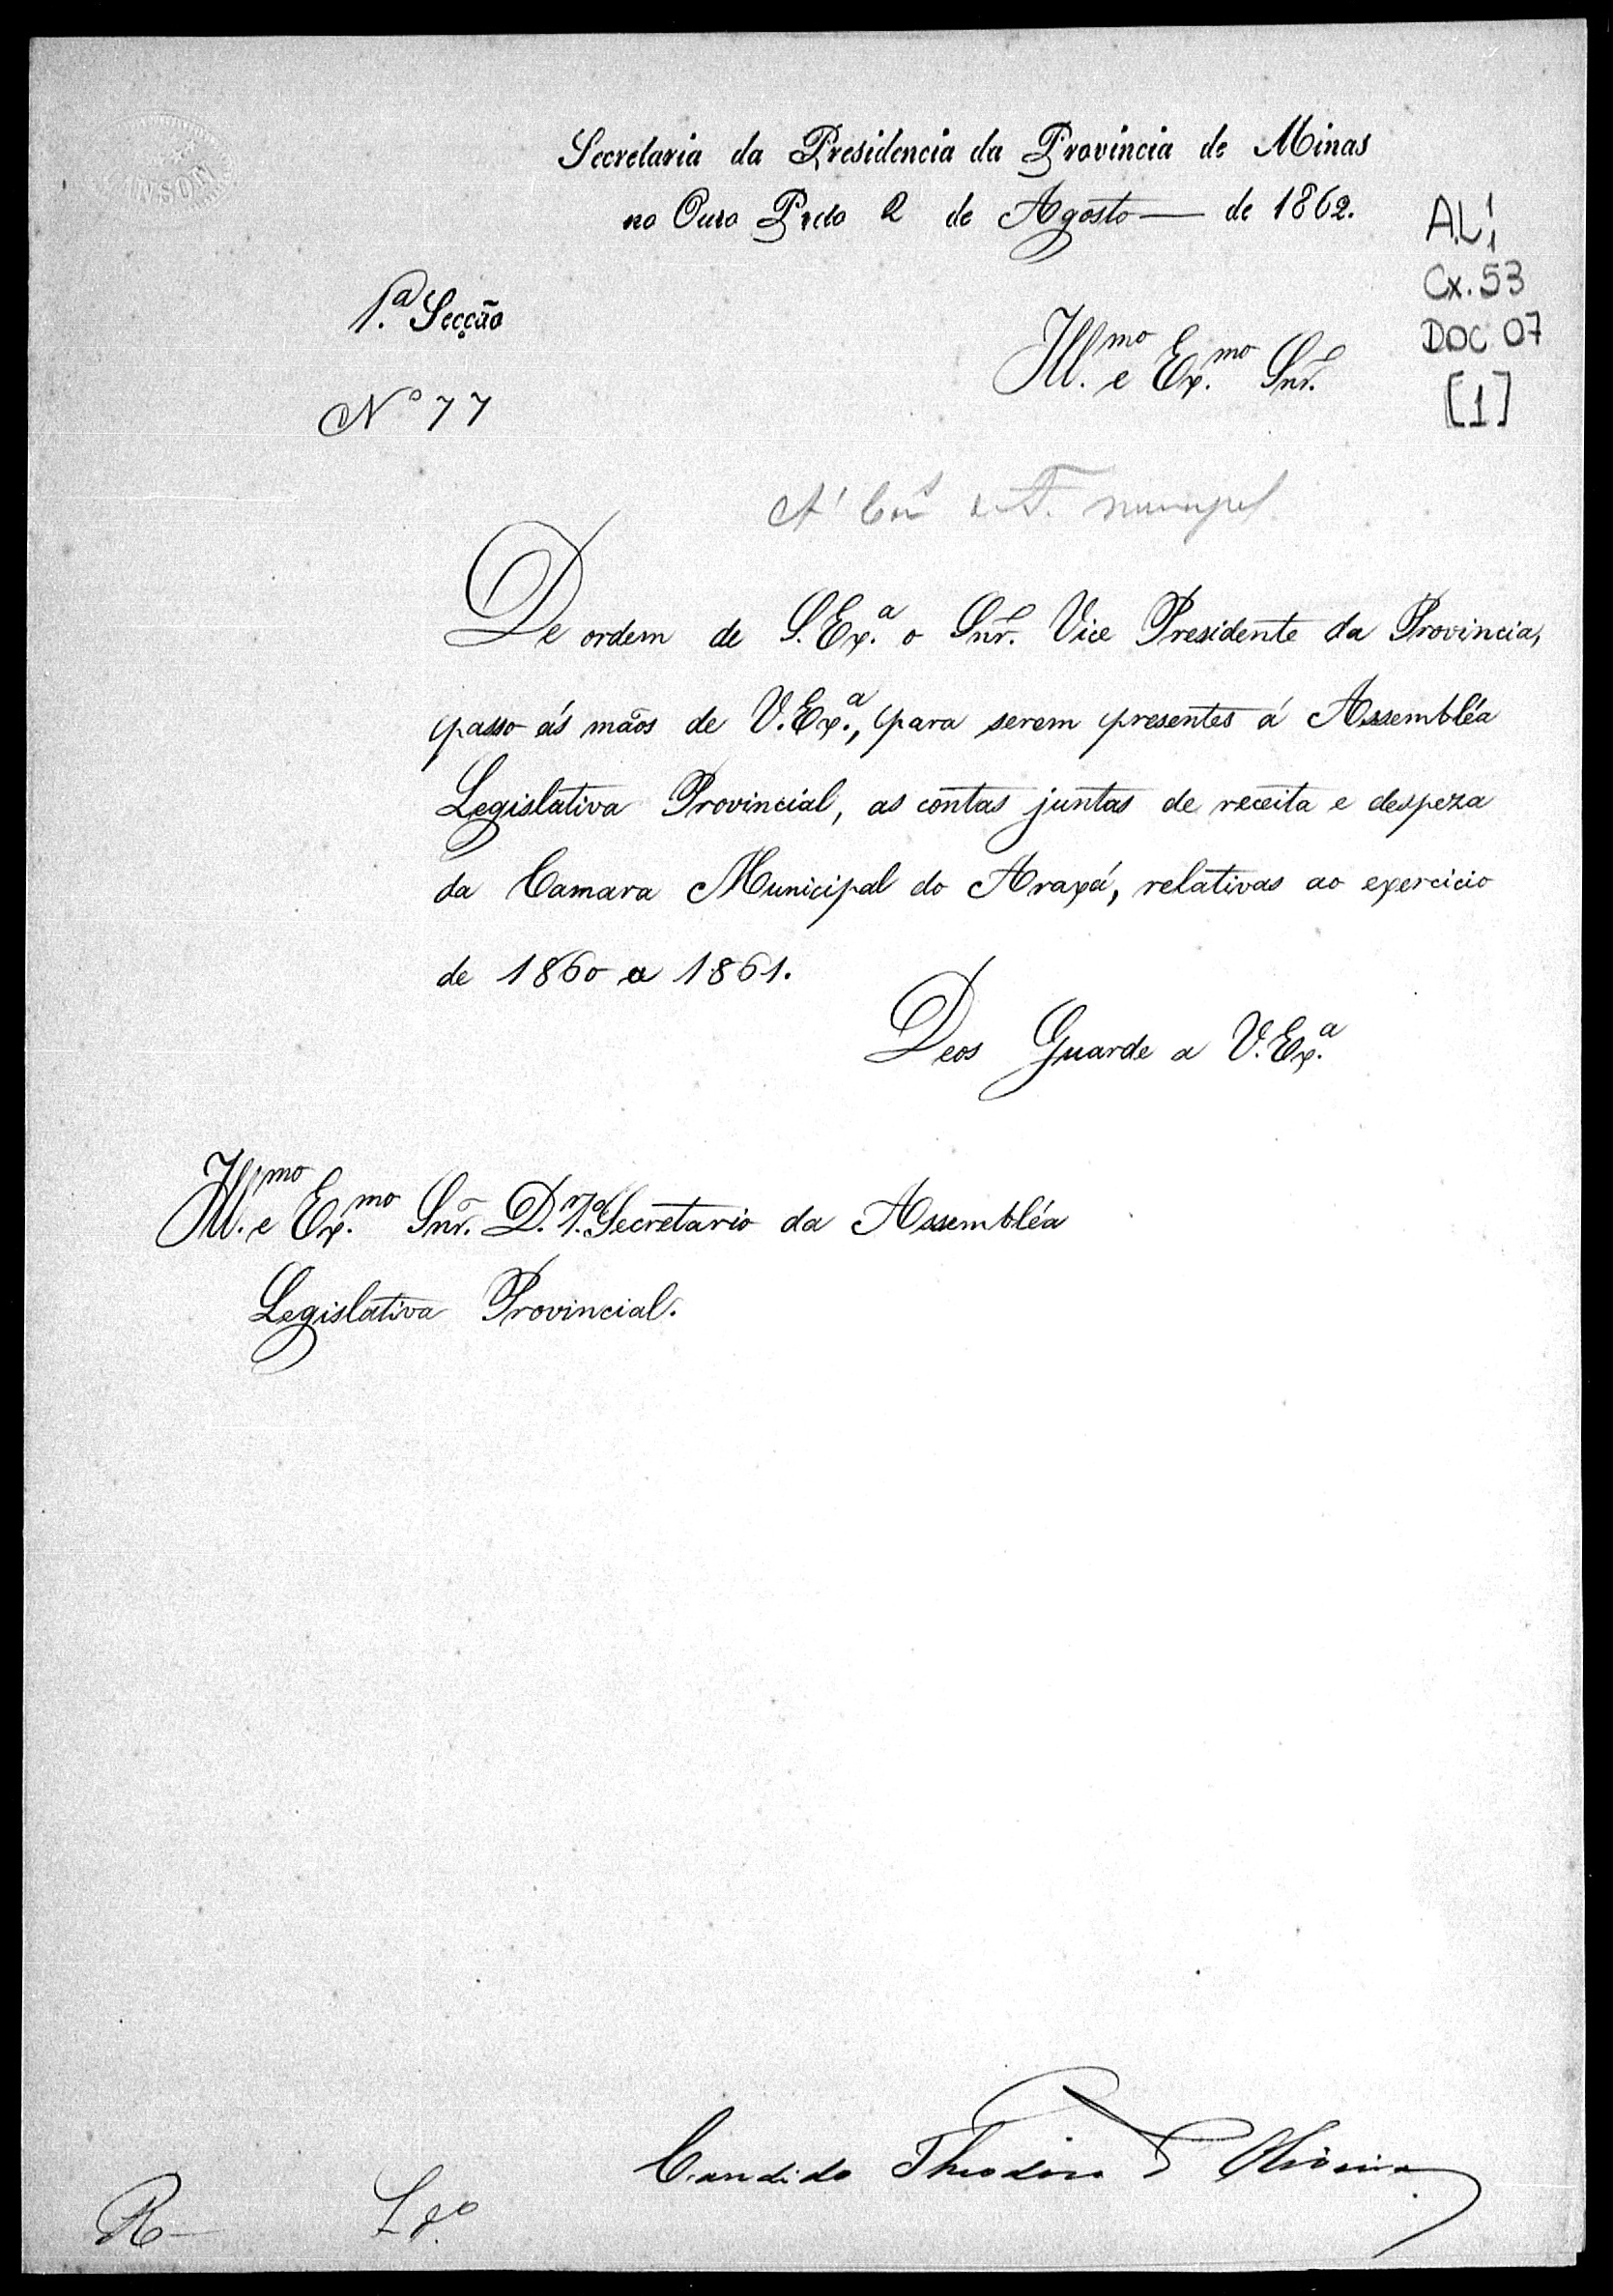 Secretaria da Presidencia da Provincia de Minas
no Ouro Preto 2 de Agosto — de 1862.
AL1
Cx. 53
DOC 07
[1]
1.ª Secção
Nº 77
Ill.mo e Ex.mo Snr.
De ordem de S. Ex.ª o Snr. Vice Presidente da Provincia,
passo ás mãos de V. Ex.ª, para serem presentes á Assembléa
Legislativa Provincial, as contas juntas de receita e despeza
da Camara Municipal do Araxá, relativas ao exercicio
de 1860 a 1861.
Deos Guarde a V. Ex.ª
Ill.mo e Ex.mo Snr. D. 1.º Secretario da Assembléa
Legislativa Provincial.
Candido Theodoro d'Oliveira